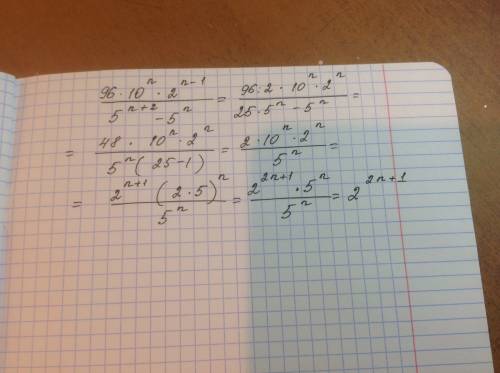 \frac{96 \cdot 10^{n} \cdot 2^{n-1}}{5^{n+2} - 5^{n}} = \frac{96 : 2 \cdot 10^{n} \cdot 2^{n}}{25 \cdot 5^{n} - 5^{n}} =
= \frac{48 \cdot 10^{n} \cdot 2^{n}}{5^{n}(25-1)} = \frac{2 \cdot 10^{n} \cdot 2^{n}}{5^{n}} =
= \frac{2^{n+1} (2 \cdot 5)^{n}}{5^{n}} = \frac{2^{2n+1} \cdot 5^{n}}{5^{n}} = 2^{2n+1}